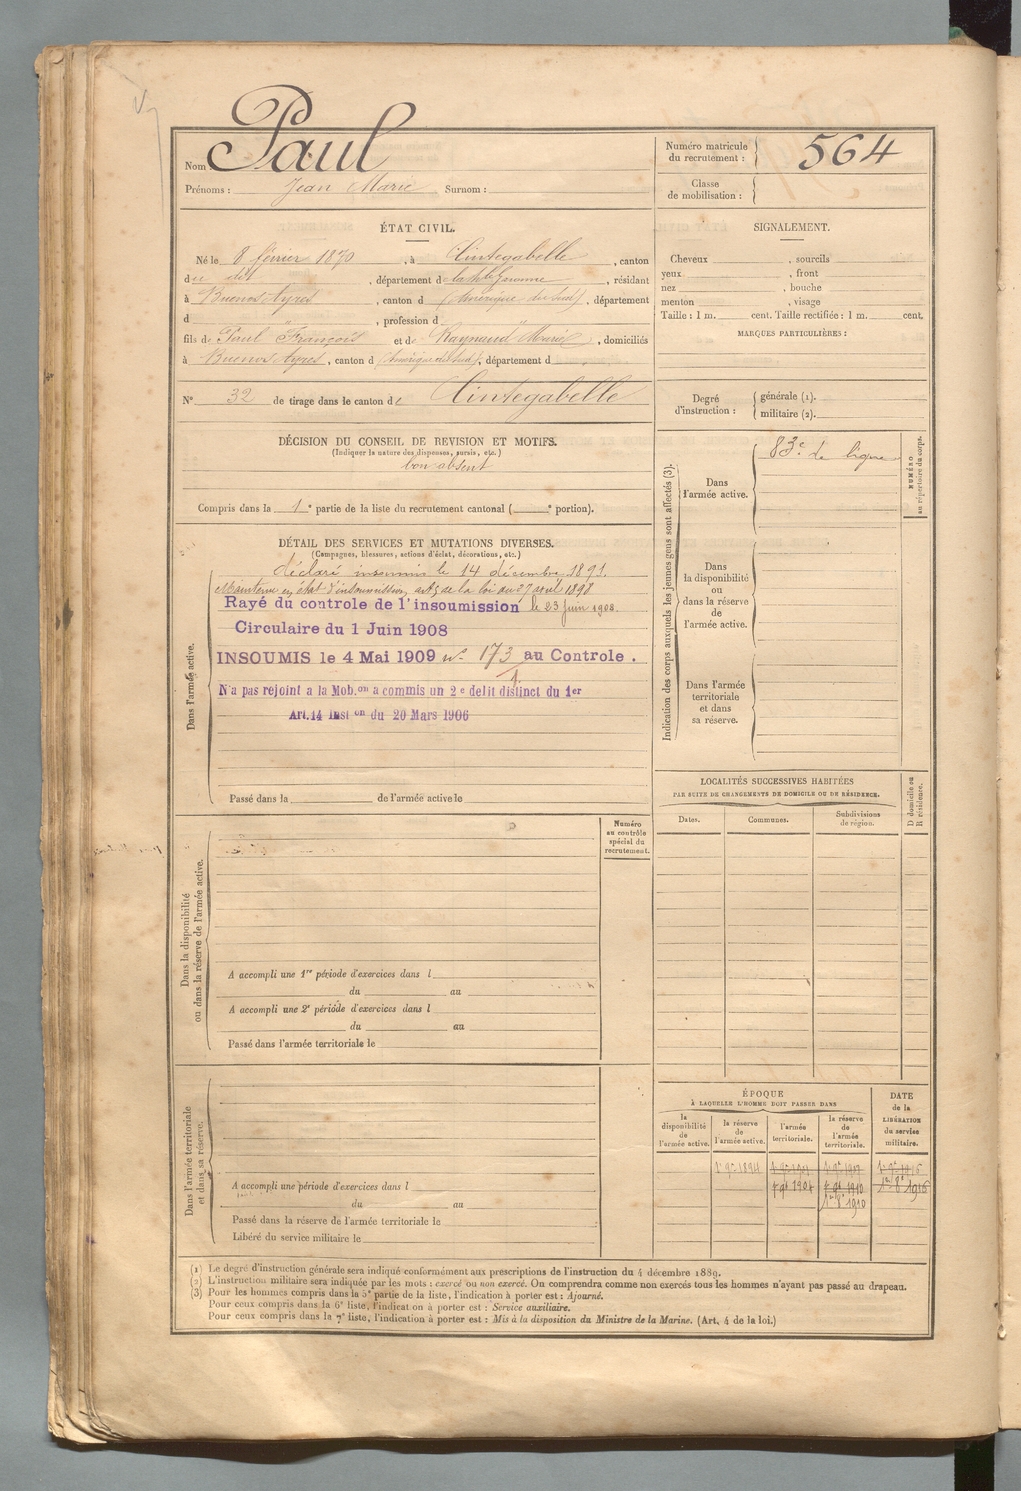 Nom Paul
Prénoms : Jean Marie Surnom :
Numéro matricule du recrutement : 564
Classe de mobilisation :
ÉTAT CIVIL.
Né le 8 février 1870, à Cintegabelle, canton
du dit, département de la Hte Garonne, résidant
à Buenos Ayres, canton d (Amérique du Sud), département
d , profession d
fils de Paul François et de Raymund Marie, domiciliés
à Buenos Ayres, canton d (Amérique du Sud), département d
N° 32 de tirage dans le canton de Cintegabelle
SIGNALEMENT.
Cheveux , sourcils
yeux , front
nez , bouche
menton , visage
Taille : 1 m. cent. Taille rectifiée : 1 m. cent.
MARQUES PARTICULIÈRES :
Degré d'instruction : générale (1).
militaire (2).
DÉCISION DU CONSEIL DE REVISION ET MOTIFS.
(Indiquer la nature des dispenses, sursis, etc.)
bon absent
Compris dans la 1e partie de la liste du recrutement cantonal ( e portion).
DÉTAIL DES SERVICES ET MUTATIONS DIVERSES.
(Campagnes, blessures, actions d'éclat, décorations, etc.)
Dans l'armée active.
déclaré insoumis le 14 décembre 1891.
Maintenu en état d'insoumission, art 2 de la loi du 27 avril 1898
Rayé du controle de l'insoumission le 23 juin 1908.
Circulaire du 1 Juin 1908
INSOUMIS le 4 Mai 1909 n° 173 au Controle.
N'a pas rejoint a la Mob.on a commis un 2e delit distinct du 1er
Art.14 Inston du 20 Mars 1906
Passé dans la de l'armée active le
Indication des corps auxquels les jeunes gens sont affectés (3).
Dans l'armée active.
83e de ligne
NUMÉRO au répertoire du corps.
Dans la disponibilité ou dans la réserve de l'armée active.
Dans l'armée territoriale et dans sa réserve.
LOCALITÉS SUCCESSIVES HABITÉES
PAR SUITE DE CHANGEMENTS DE DOMICILE OU DE RÉSIDENCE.
Dates. Communes. Subdivisions de région. D domicile ou R résidence.
Dans la disponibilité ou dans la réserve de l'armée active.
Numéro au contrôle spécial du recrutement.
A accompli une 1re période d'exercices dans l
du au
A accompli une 2e période d'exercices dans l
du au
Passé dans l'armée territoriale le
Dans l'armée territoriale et dans sa réserve.
A accompli une période d'exercices dans l
du au
Passé dans la réserve de l'armée territoriale le
Libéré du service militaire le
ÉPOQUE
À LAQUELLE L'HOMME DOIT PASSER DANS
la disponibilité de l'armée active. la réserve de l'armée active. l'armée territoriale. la réserve de l'armée territoriale.
DATE de la LIBÉRATION du service militaire.
1er 9bre 1894
1er 9bre 1904 1er 9bre 1910 1er 8bre 1916
1er 8bre 1910
(1) Le degré d'instruction générale sera indiqué conformément aux prescriptions de l'instruction du 4 décembre 1889.
(2) L'instruction militaire sera indiquée par les mots : exercé ou non exercé. On comprendra comme non exercés tous les hommes n'ayant pas passé au drapeau.
(3) Pour les hommes compris dans la 5e partie de la liste, l'indication à porter est : Ajourné.
Pour ceux compris dans la 6e liste, l'indication à porter est : Service auxiliaire.
Pour ceux compris dans la 7e liste, l'indication à porter est : Mis à la disposition du Ministre de la Marine. (Art. 4 de la loi.)